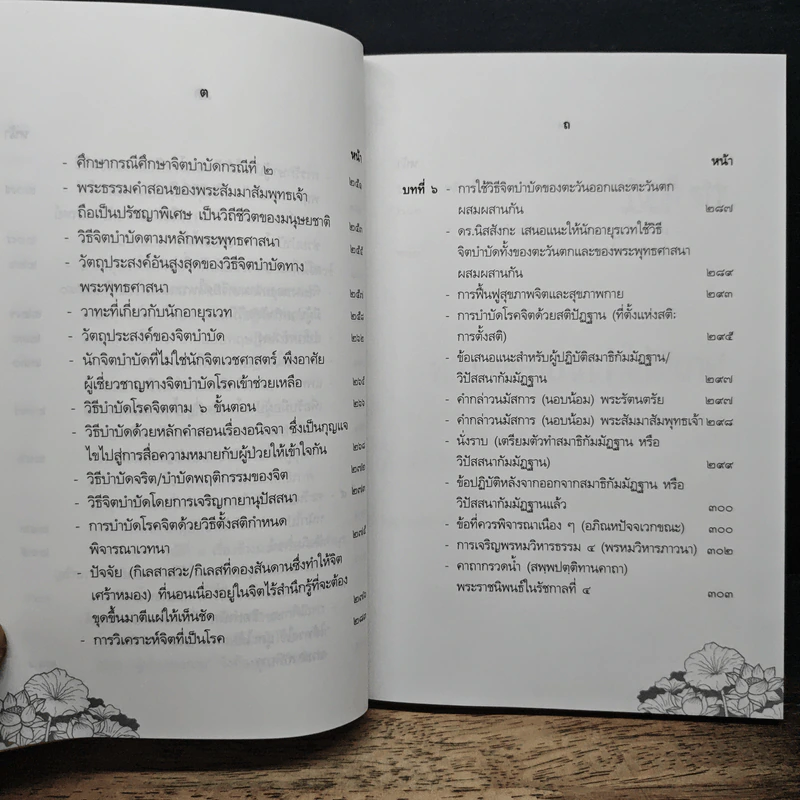 ต
หน้า
- ศึกษากรณีศึกษาจิตบำบัดกรณีที่ ๒ ๒๕๑
- พระธรรมคำสอนของพระสัมมาสัมพุทธเจ้า
ถือเป็นปรัชญาพิเศษ เป็นวิถีชีวิตของมนุษยชาติ ๒๕๓
- วิธีจิตบำบัดตามหลักพระพุทธศาสนา ๒๕๕
- วัตถุประสงค์อันสูงสุดของวิธีจิตบำบัดทาง
พระพุทธศาสนา ๒๕๗
- วาทะที่เกี่ยวกับนักอายุรเวท ๒๕๘
- วัตถุประสงค์ของจิตบำบัด ๒๖๒
- นักจิตบำบัดที่ไม่ใช่นักจิตเวชศาสตร์ พึงอาศัย
ผู้เชี่ยวชาญทางจิตบำบัดโรคเข้าช่วยเหลือ ๒๖๔
- วิธีบำบัดโรคจิตตาม ๖ ขั้นตอน ๒๖๖
- วิธีบำบัดด้วยหลักคำสอนเรื่องอนิจจา ซึ่งเป็นกุญแจ
ไขไปสู่การสื่อความหมายกับผู้ป่วยให้เข้าใจกัน ๒๖๘
- วิธีบำบัดจริต/บำบัดพฤติกรรมของจิต ๒๗๒
- วิธีจิตบำบัดโดยการเจริญกายานุปัสสนา ๒๗๓
- การบำบัดโรคจิตด้วยวิธีตั้งสติกำหนด
พิจารณาเวทนา ๒๗๕
- ปัจจัย (กิเลสาสวะ/กิเลสที่ดองสันดานซึ่งทำให้จิต
เศร้าหมอง) ที่นอนเนื่องอยู่ในจิตไร้สำนึกรู้ที่จะต้อง
ขุดขึ้นมาตีแผ่ให้เห็นชัด ๒๗๖
- การวิเคราะห์จิตที่เป็นโรค ๒๘๑
ถ
หน้า
บทที่ ๖ - การใช้วิธีจิตบำบัดของตะวันออกและตะวันตก
ผสมผสานกัน ๒๘๗
- ดร.นิสสังกะ เสนอแนะให้นักอายุรเวทใช้วิธี
จิตบำบัดทั้งของตะวันตกและของพระพุทธศาสนา
ผสมผสานกัน ๒๘๙
- การฟื้นฟูสุขภาพจิตและสุขภาพกาย ๒๙๓
- การบำบัดโรคจิตด้วยสติปัฏฐาน (ที่ตั้งแห่งสติ:
การตั้งสติ) ๒๙๕
- ข้อเสนอแนะสำหรับผู้ปฏิบัติสมาธิกัมมัฏฐาน/
วิปัสสนากัมมัฏฐาน ๒๙๗
- คำกล่าวนมัสการ (นอบน้อม) พระรัตนตรัย ๒๙๗
- คำกล่าวนมัสการ (นอบน้อม) พระสัมมาสัมพุทธเจ้า ๒๙๘
- นั่งราบ (เตรียมตัวทำสมาธิกัมมัฏฐาน หรือ
วิปัสสนากัมมัฏฐาน) ๒๙๙
- ข้อปฏิบัติหลังจากออกจากสมาธิกัมมัฏฐาน หรือ
วิปัสสนากัมมัฏฐานแล้ว ๓๐๐
- ข้อที่ควรพิจารณาเนือง ๆ (อภิณหปัจจเวกขณะ) ๓๐๐
- การเจริญพรหมวิหารธรรม ๔ (พรหมวิหารภาวนา) ๓๐๒
- คาถากรวดน้ำ (สพฺพปตฺติทานคาถา)
พระราชนิพนธ์ในรัชกาลที่ ๔ ๓๐๓